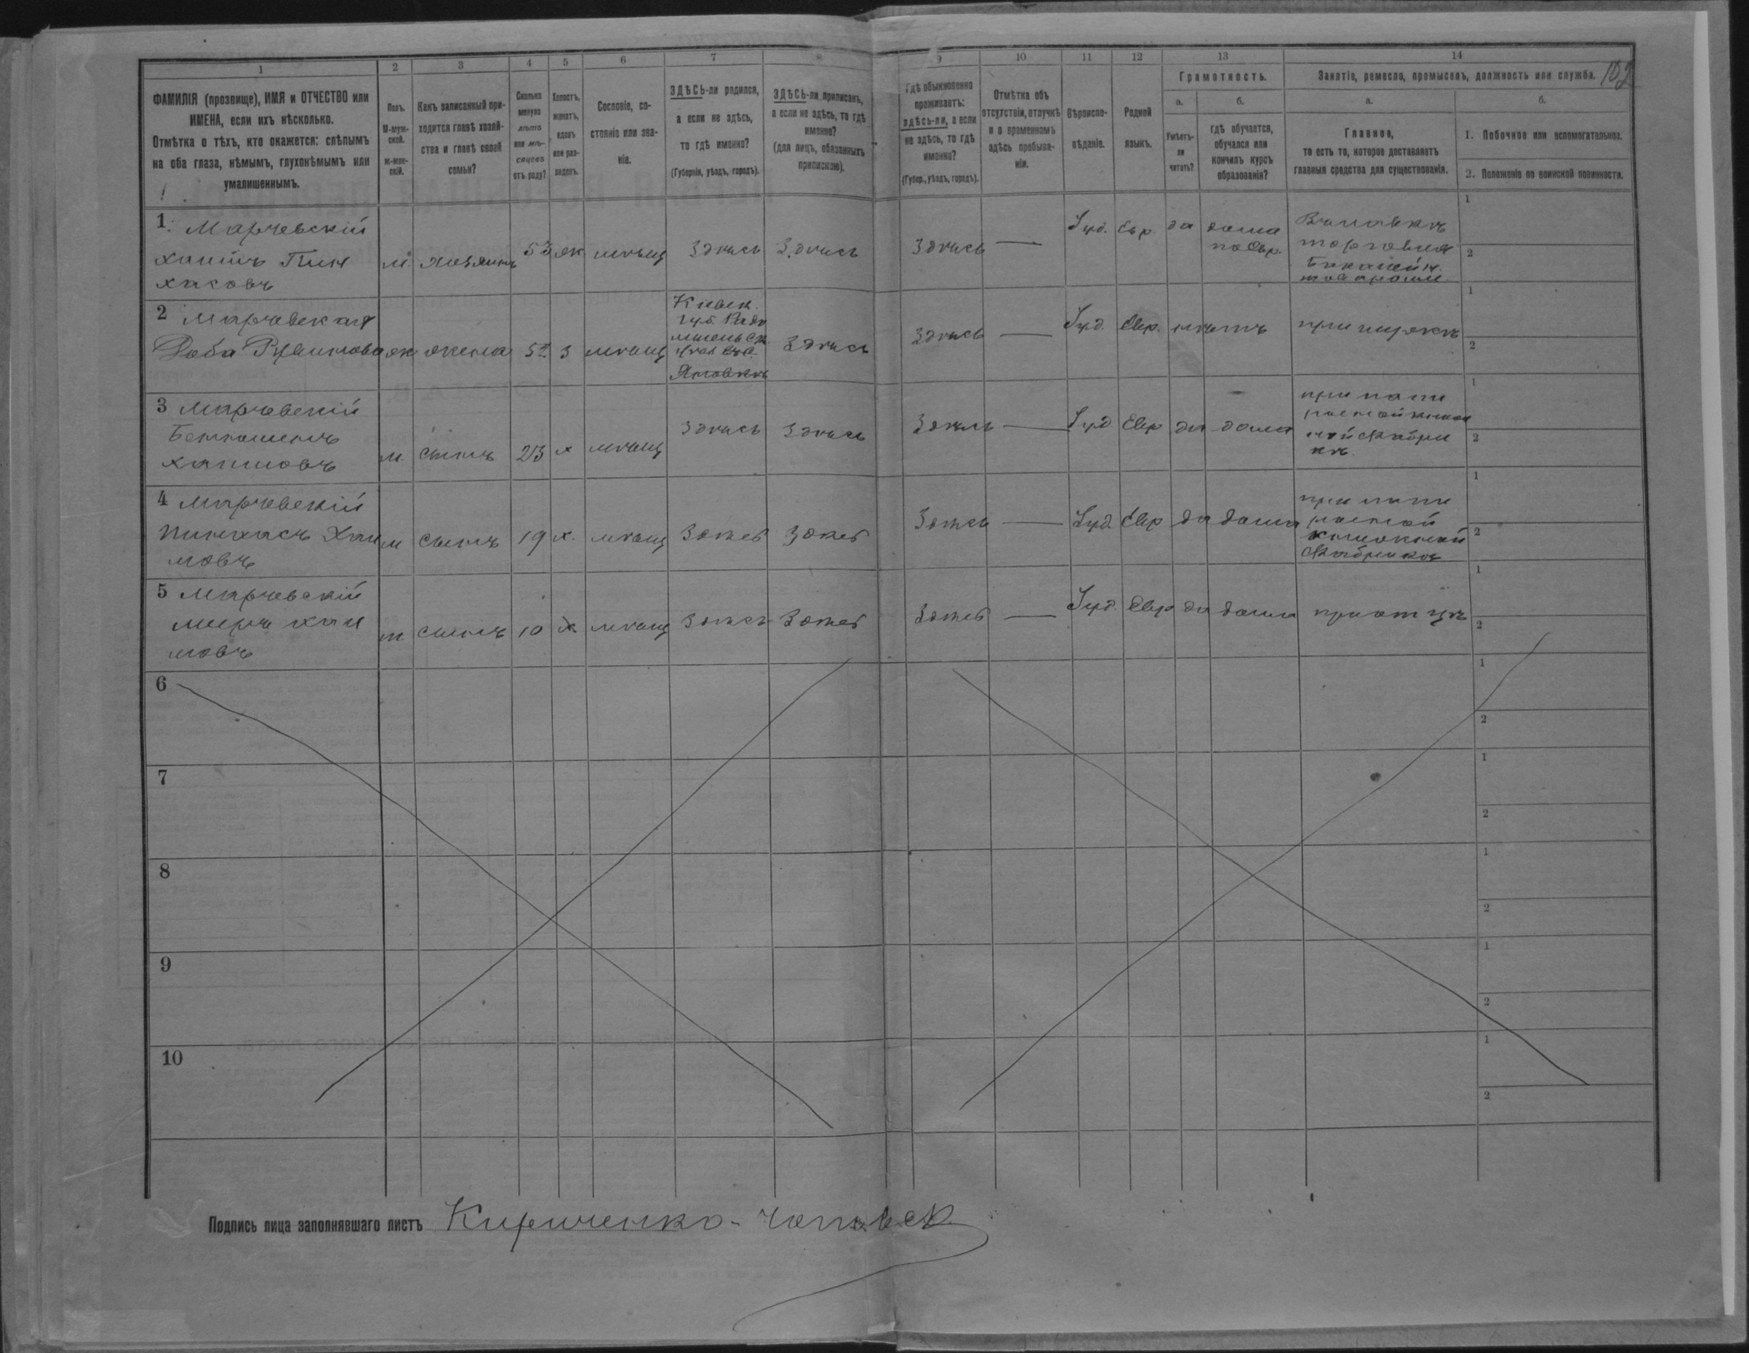 102
1 2 3 4 5 6 7 8 9 10 11 12 13 14
ФАМИЛІЯ (прозвище), ИМЯ и ОТЧЕСТВО или
ИМЕНА, если ихъ нѣсколько.
Отмѣтка о тѣхъ, кто окажется: слѣпымъ
на оба глаза, нѣмымъ, глухонѣмымъ или
умалишеннымъ.
Полъ.
М-муж-
ской.
ж-жен-
скій.
Какъ записанный при-
ходится главѣ хозяй-
ства и главѣ своей
семьи?
Сколько
минуло
лѣтъ
или мѣ-
сяцевъ
отъ роду?
Холостъ,
женатъ,
вдовъ
или раз-
веденъ.
Сословіе, со-
стояніе или зва-
ніе.
ЗДѢСЬ-ли родился,
а если не здѣсь,
то гдѣ именно?
(Губернія, уѣздъ, городъ).
ЗДѢСЬ-ли приписанъ,
а если не здѣсь, то гдѣ
именно?
(для лицъ, обязанныхъ
припискою).
Гдѣ обыкновенно
проживаетъ:
здѣсь-ли, а если
не здѣсь, то гдѣ
именно?
(Губер., уѣздъ, городъ).
Отмѣтка объ
отсутствіи, отлучкѣ
и о временномъ
здѣсь пребыва-
ніи.
Вѣроиспо-
вѣданіе.
Родной
языкъ.
Грамотность.
а. б.
Умѣетъ-
ли
читать?
гдѣ обучается,
обучался или
кончилъ курсъ
образованія?
Занятіе, ремесло, промыселъ, должность или служба.
а. б.
Главное,
то есть то, которое доставляетъ
главныя средства для существованія.
1. Побочное или вспомогательное.
2. Положеніе по воинской повинности.
1. Марчевскій
Хаимъ Пин
хасовъ
м хозяинъ 53 ж мѣщ Здѣсь Здѣсь Здѣсь — Іуд. Евр. да дома
по Евр.
торговля
Бакалейн.
товарами
1
2
2 Марчевская
ж жена 52 з мѣщ
Киевск.
губ. Радо
Здѣсь Здѣсь — Іуд. Евр. нѣтъ при мужѣ
1
2
3 Марчевскій
Хаимовъ
м. сынъ 23 х мѣщ Здѣсь Здѣсь Здѣсь — Іуд Евр да дома
при папи
росной
фабри
кѣ
1
2
4 Марчевскій
Пинхасъ Хаи
мовъ
м сынъ 19 х. мѣщ Здѣсь Здѣсь Здѣсь — Іуд. Евр да дома
при папи
росной
фабрикѣ
1
2
5 Марчевскій
Меиръ Хаи
мовъ
м сынъ 10 х мѣщ Здѣсь Здѣсь Здѣсь — Іуд. Евр да дома при отцѣ
1
2
6
1
2
7
1
2
8
1
2
9
1
2
10
1
2
Подпись лица заполнявшаго листъ Кириченко-